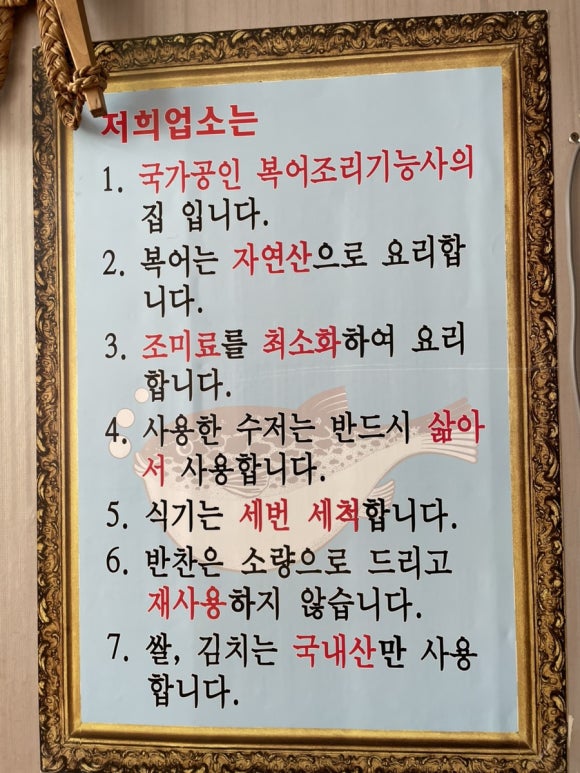 저희업소는
1. 국가공인 복어조리기능사의
집 입니다.
2. 복어는 자연산으로 요리합
니다.
3. 조미료를 최소화하여 요리
합니다.
4. 사용한 수저는 반드시 삶아
서 사용합니다.
5. 식기는 세번 세척합니다.
6. 반찬은 소량으로 드리고
재사용하지 않습니다.
7. 쌀, 김치는 국내산만 사용
합니다.